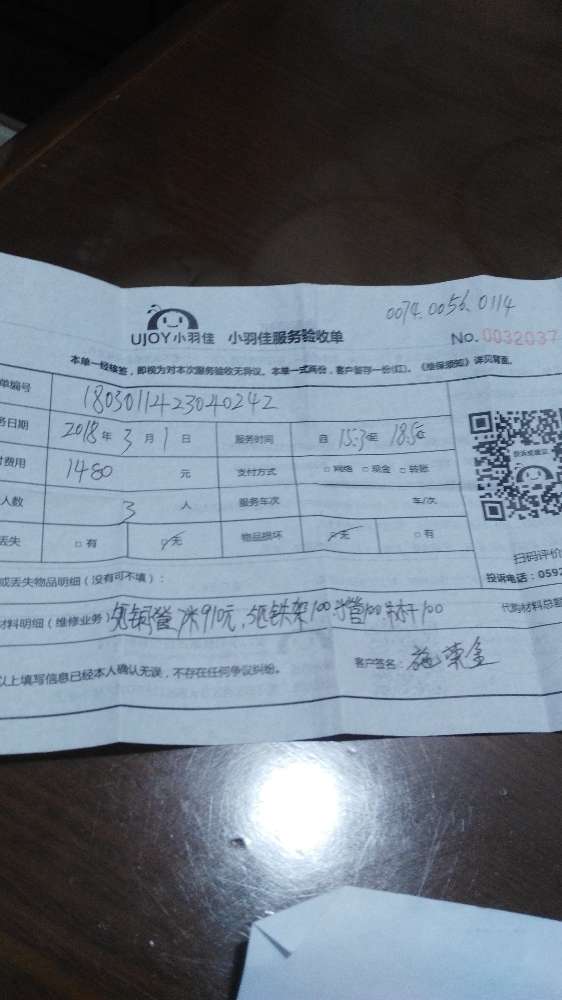 0074.0056.0114
UJOY小羽佳 小羽佳服务验收单
No. 0032037
本单一经核签，即视为对本次服务验收无异议。本单一式两份，客户留存一份(红)。《维保须知》详见背面。
单编号 1803011423040242
务日期 2018 年 3 月 1 日 服务时间 自 15:3 至 18:5
费用 1480 元 支付方式 □ 网络 □ 现金 □ 转账
人数 3 人 服务车次 车/次
丢失 □ 有 无 物品损坏 无 □ 有
扫码评价
投诉电话：0592
或丢失物品明细（没有可不填）：
材料明细（维修业务） 铜管 7米910元，铁架100 管100 100
代购材料总
以上填写信息已经本人确认无误，不存在任何争议纠纷。
客户签名： 施荣金